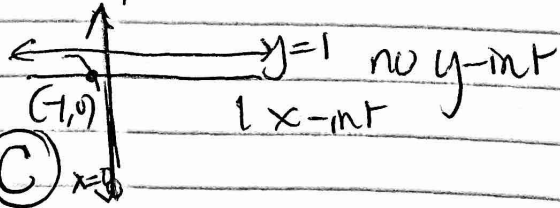 y=1 no y-int
(-1,0) 1 x-int
C x=0